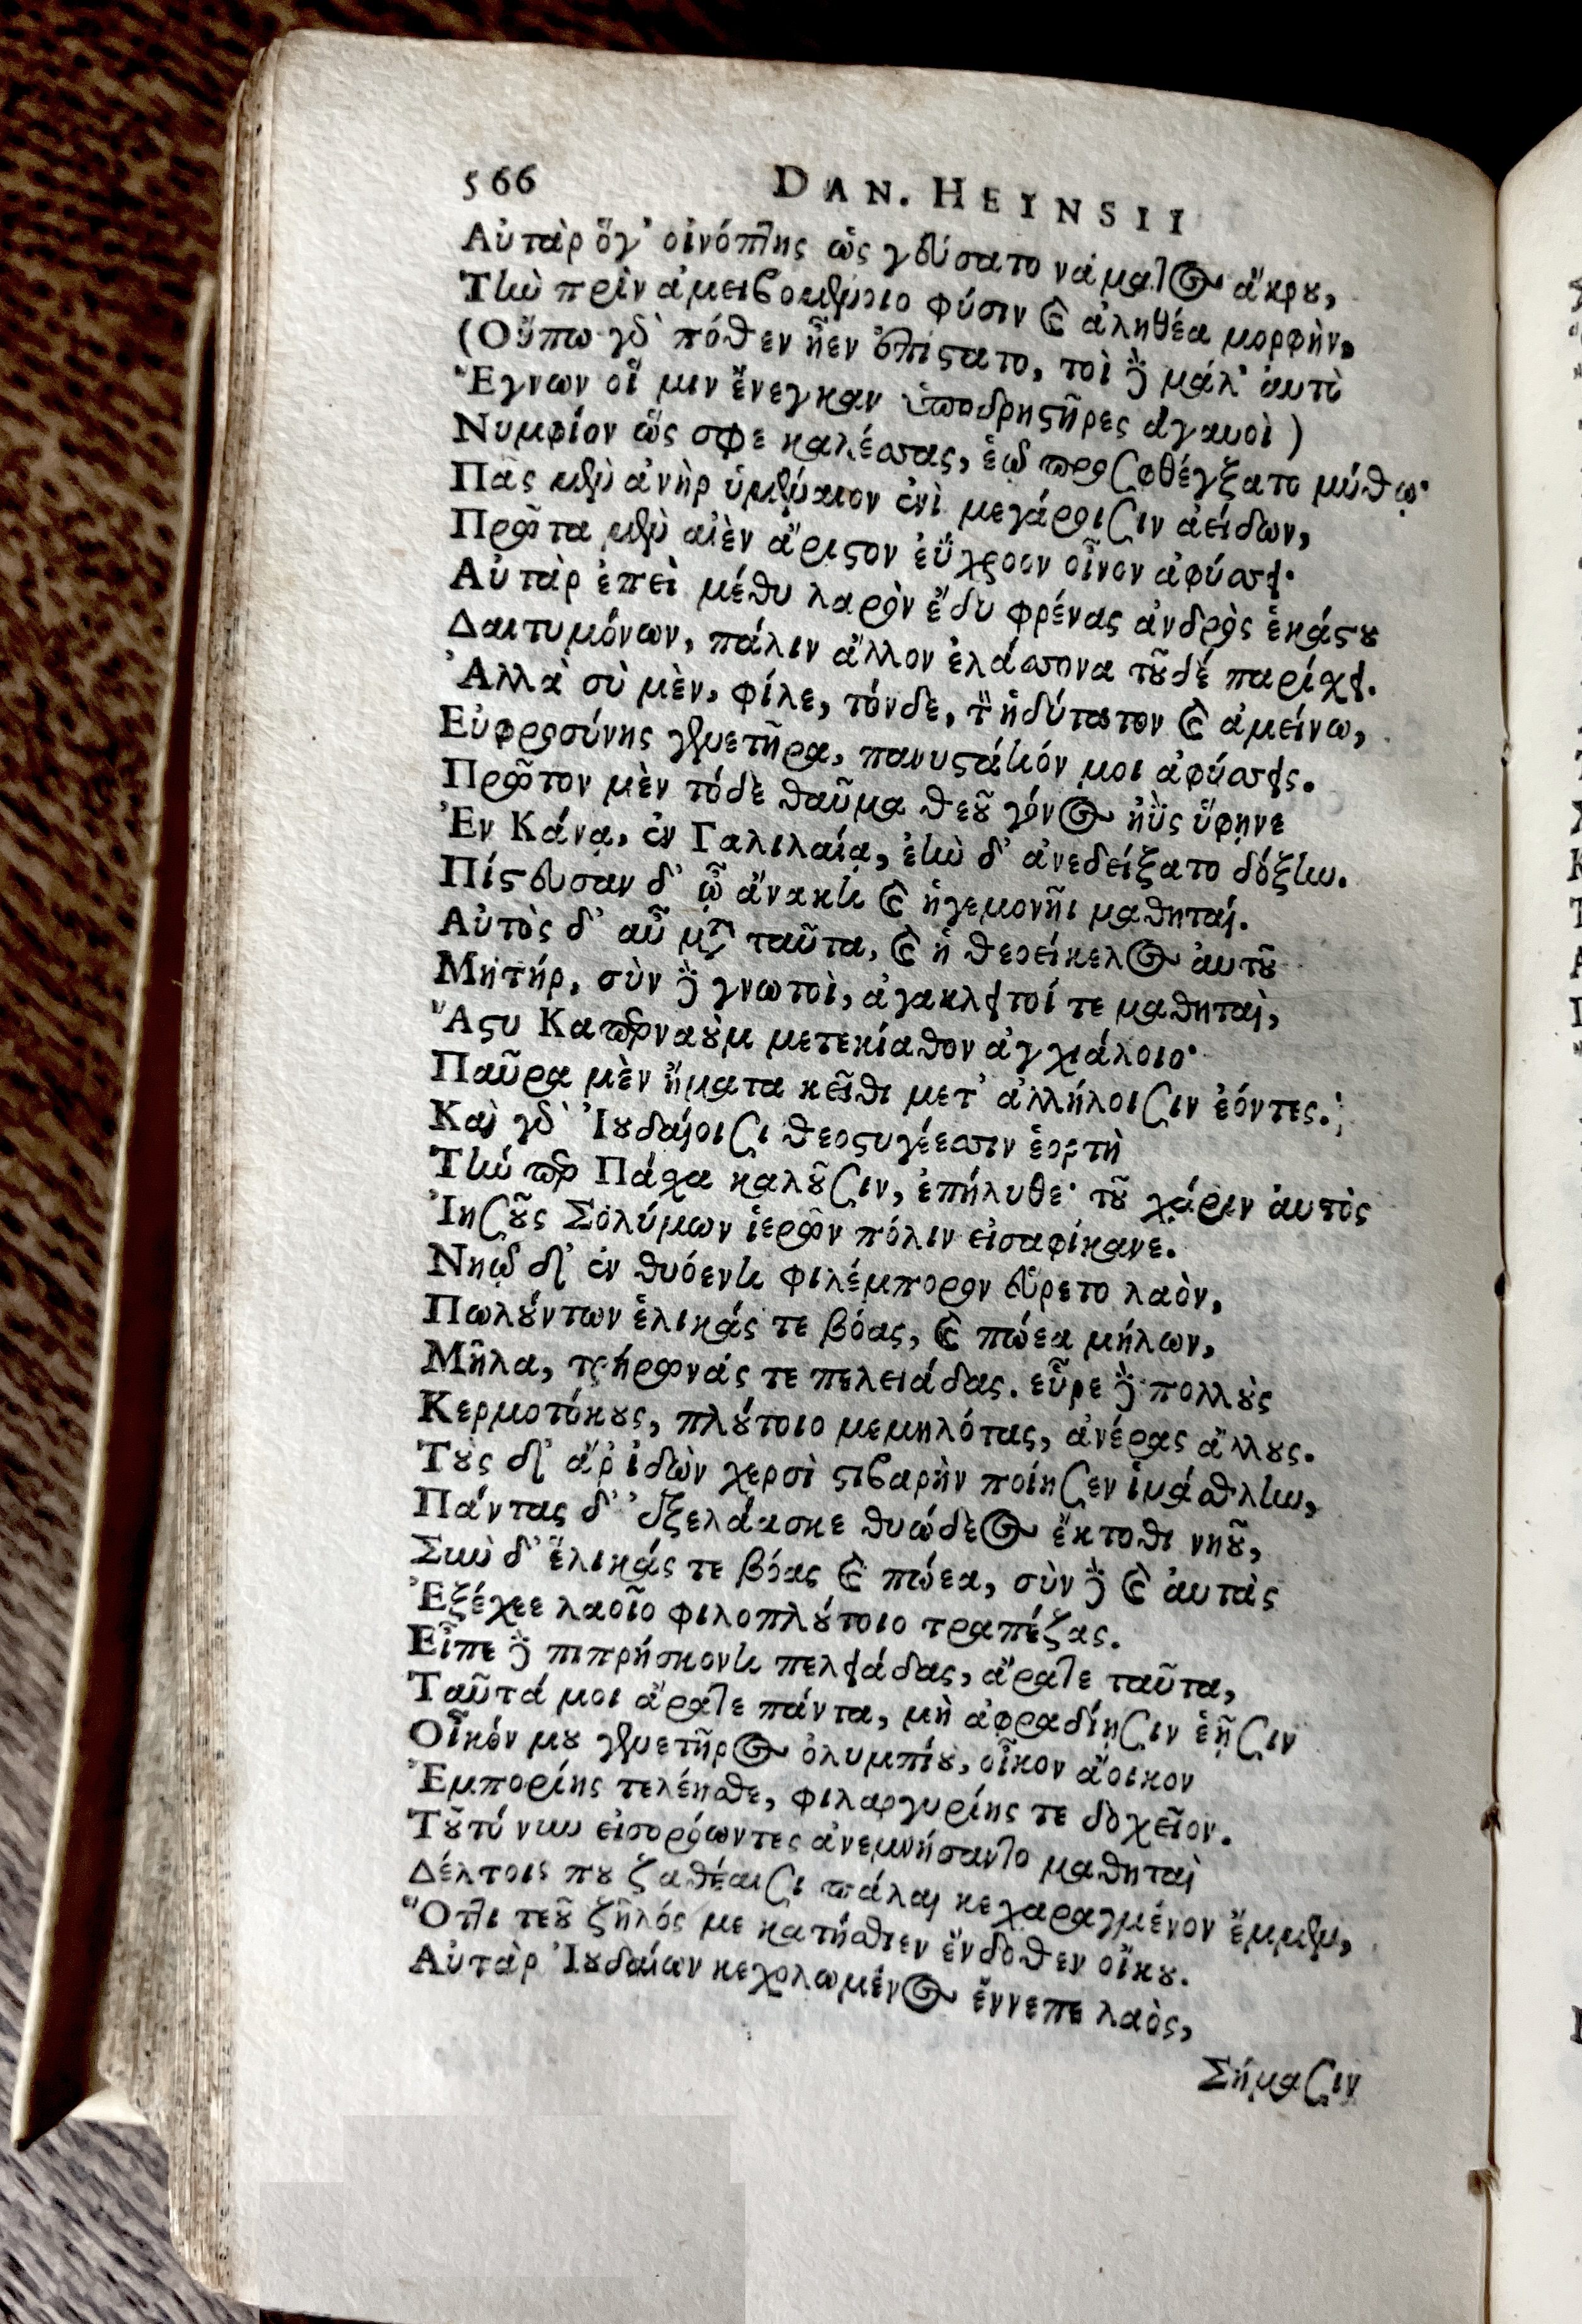 566 DAN. HEINSII
Αὐτὰρ ὅγ' οἰνόπλης ὡς γεύσατο νάματος ἄκρου,
Τὴν πρὶν ἀμειβομένοιο φύσιν καὶ ἀληθέα μορφὴν,
(Οὔπω γὰρ πόθεν ἦεν ἐπίστατο, τοὶ δὲ μάλ' αὐτὸ
Ἔγνων οἵ μιν ἔνεγκαν ὑποδρηστῆρες ἀγαυοὶ)
Νυμφίον ὥς σφε καλέσσας, ἑῷ προσφθέγξατο μύθῳ·
Πᾶς μὲν ἀνὴρ ὑμέναιον ἐνὶ μεγάροισιν ἀείδων,
Πρῶτα μὲν αἰὲν ἄριστον ἐΰχροον οἶνον ἀφύσσει·
Αὐτὰρ ἐπεὶ μέθυ λαρὸν ἔδυ φρένας ἀνδρὸς ἑκάστου
Δαιτυμόνων, πάλιν ἄλλον ἐλάσσονα τοῦδε παρίσχει.
Ἀλλὰ σὺ μὲν, φίλε, τόνδε, τὸν ἡδύτατον καὶ ἀμείνω,
Εὐφροσύνης γενετῆρα, πανυστάτιόν μοι ἀφύσσεις.
Πρῶτον μὲν τόδε θαῦμα θεοῦ γόνος ἠῢς ὕφηνε
Ἐν Κάνᾳ, ἐν Γαλιλαίᾳ, ἑὴν δ' ἀνεδείξατο δόξην.
Πίστευσαν δ' ᾧ ἄνακτι καὶ ἡγεμονῆϊ μαθηταί.
Αὐτὸς δ' αὖ μετὰ ταῦτα, καὶ ἡ θεοείκελος αὐτοῦ
Μήτηρ, σὺν δὲ γνωτοὶ, ἀγακλειτοί τε μαθηταὶ,
Ἄστυ Καπερναοὺμ μετεκίαθον ἀγχιάλοιο·
Παῦρα μὲν ἤματα κεῖθι μετ' ἀλλήλοισιν ἐόντες.
Καὶ γὰρ Ἰουδαίοισι θεοστυγέεσσιν ἑορτὴ
Τήν περ Πάσχα καλοῦσιν, ἐπήλυθε· τοῦ χάριν αὐτὸς
Ἰησοῦς Σολύμων ἱερῶν πόλιν εἰσαφίκανε.
Νηῷ δ' ἐν θυόεντι φιλέμπορον εὕρετο λαὸν,
Πωλούντων ἕλικάς τε βόας, καὶ πώεα μήλων,
Μῆλα, τρήρωνάς τε πελειάδας. εὗρε δὲ πολλοὺς
Κερμοτόκους, πλούτοιο μεμηλότας, ἀνέρας ἄλλους.
Τοὺς δ' ἄρ' ἰδὼν χερσὶ στιβαρὴν ποίησεν ἱμάσθλην,
Πάντας δ' ἐξελάασκε θυώδεος ἔκτοθι νηοῦ,
Σὺν δ' ἕλικάς τε βόας καὶ πώεα, σὺν δὲ καὶ αὐτὰς
Ἐξέχεε λαοῖο φιλοπλούτοιο τραπέζας.
Εἶπε δὲ πιπρήσκοντι πελειάδας, ἄρατε ταῦτα,
Ταῦτά μοι ἄρατε πάντα, μὴ ἀφραδίῃσιν ἑῇσιν
Οἶκόν μου γενετῆρος ὀλυμπίου, οἶκον ἄοικον
Ἐμπορίης τελέησθε, φιλαργυρίης τε δοχεῖον.
Τοῦτό νυν εἰσορόωντες ἀνεμνήσαντο μαθηταὶ
Δέλτοις που ζαθέαισι πάλαι κεχαραγμένον ἔμμεν,
Ὅττι τεοῦ ζῆλός με κατήσθιεν ἔνδοθεν οἴκου.
Αὐτὰρ Ἰουδαίων κεχολωμένος ἔννεπε λαὸς,
Σήμασιν